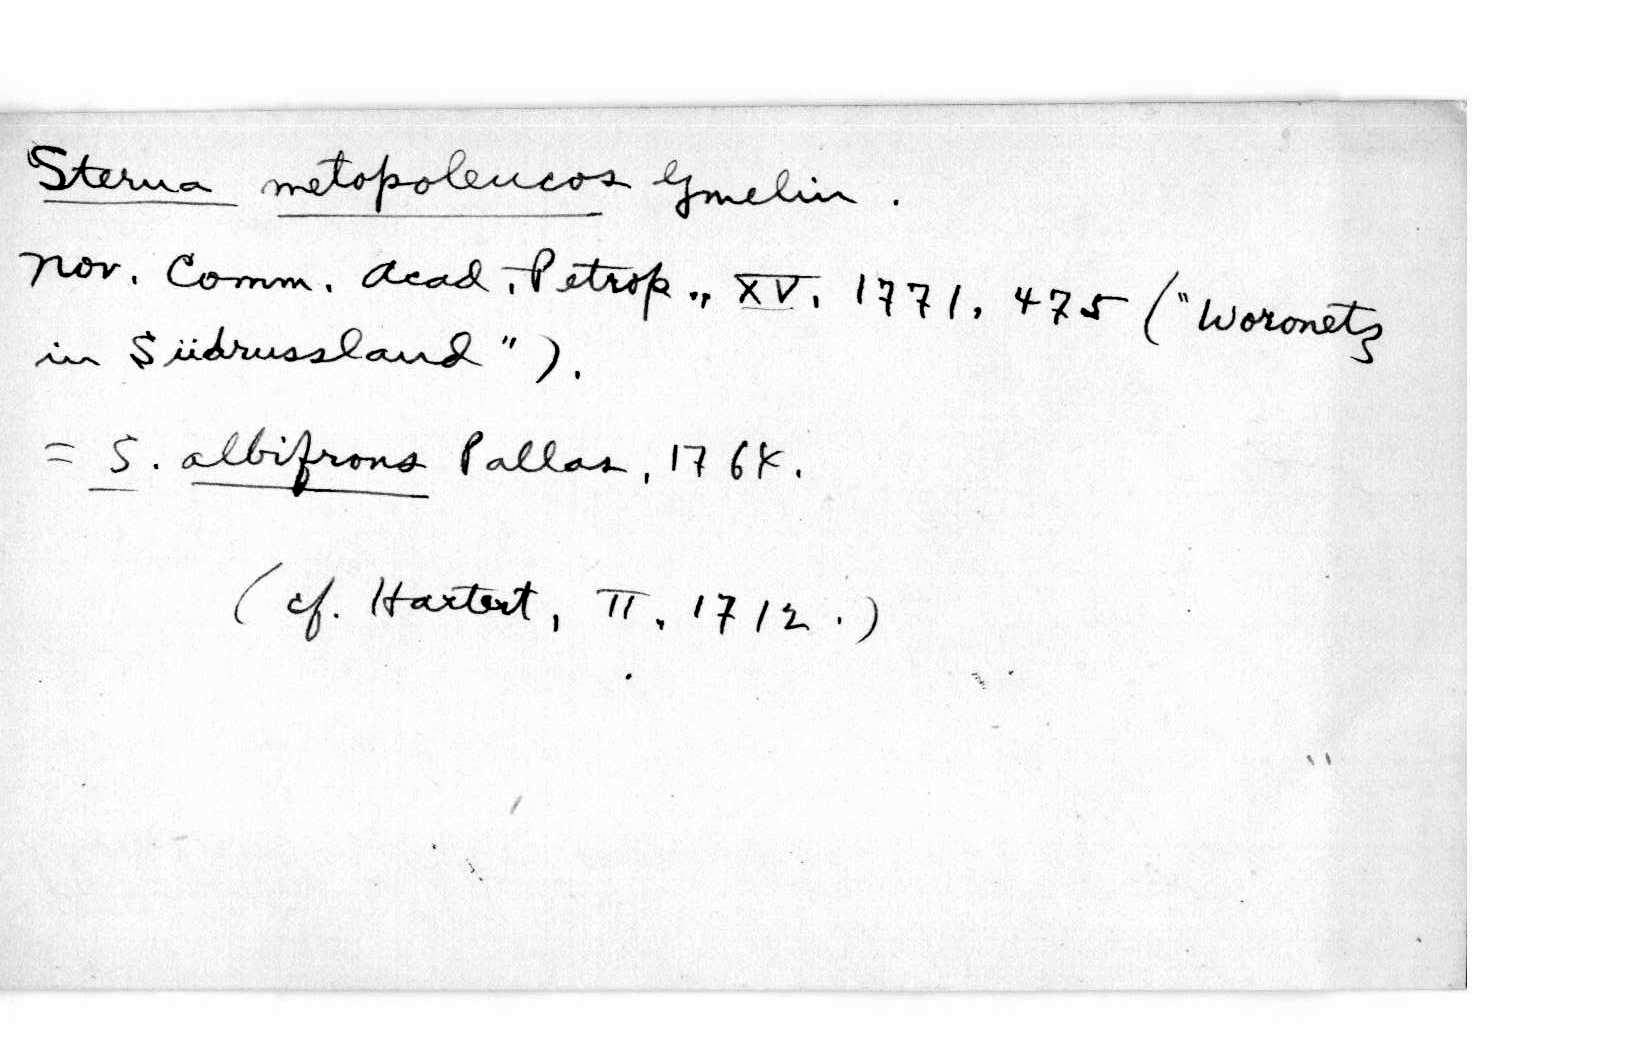 Sterna metopoleucos Gmelin.
Nov. Comm. Acad. Petrop., XV, 1771, 475 ("Woronetz
in Südrussland").
= S. albifrons Pallas, 1764.
(cf. Hartert, II, 1712.)